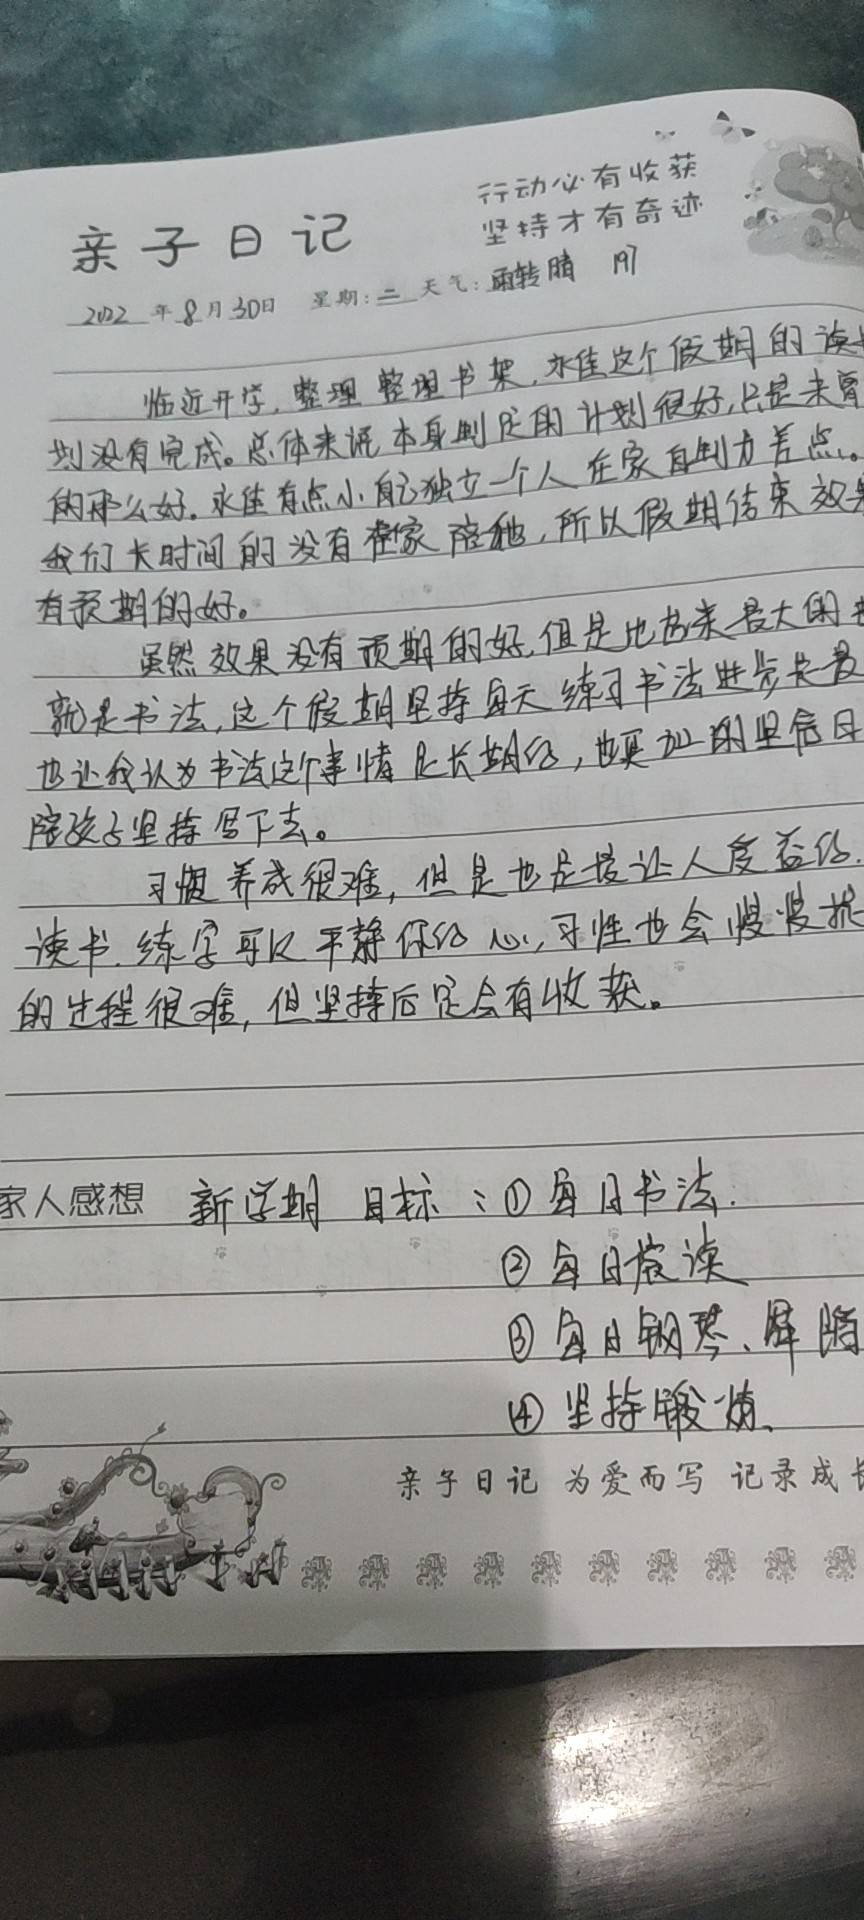 行动必有收获
坚持才有奇迹
亲子日记
2022年8月30日 星期:二 天气:雨转晴 197
临近开学,整理整理书架,永佳这个假期的读
划没有完成。总体来说本身制定的计划很好,只是未
的那么好。永佳有点小,自己独立一个人在家自制力差点。
我们长时间的没有在家陪他,所以假期结束效果
有预期的好。
虽然效果没有预期的好,但是比起来最大的
就是书法,这个假期坚持每天练习书法进步
也让我认为书法这个事情是长期的,也更加的坚信
陪孩子坚持写下去。
习惯养成很难,但是也是最让人受益的.
读书.练字可以平静你的心,习性也会慢慢
的过程很难,但坚持后定会有收获。
家人感想 新学期 目标:①每日书法.
②每日读
③每日钢琴、
④坚持锻炼.
亲子日记 为爱而写 记录成长